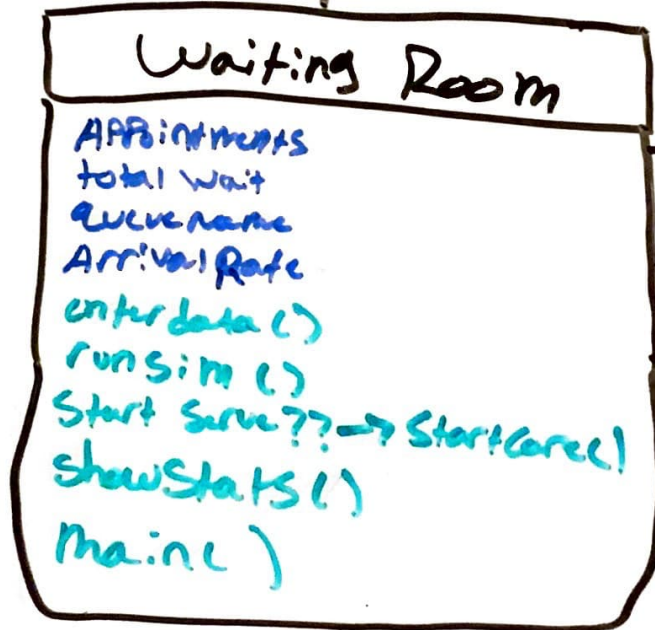 Waiting Room
Appointments
total wait
queuename
Arrival Rate
enterdata()
runsim()
Start Serve??→StartCare()
showStats()
main()